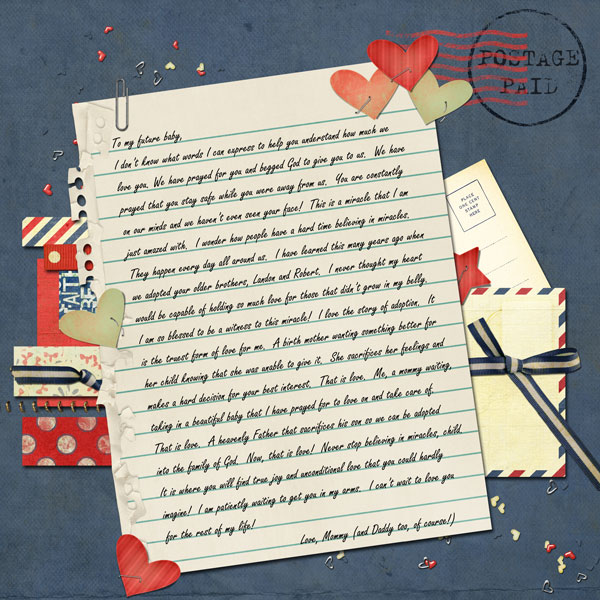 POSTAGE
PAID
To my future baby,
I don't know what words I can express to help you understand how much we
love you. We have prayed for you and begged God to give you to us. We have
prayed that you stay safe while you were away from us. You are constantly
on our minds and we haven't even seen your face! This is a miracle that I am
just amazed with. I wonder how people have a hard time believing in miracles.
They happen every day all around us. I have learned this many years ago when
we adopted your older brothers, Landon and Robert. I never thought my heart
would be capable of holding so much love for those that didn't grow in my belly.
I am so blessed to be a witness to this miracle! I love the story of adoption. It
is the truest form of love for me. A birth mother wanting something better for
her child knowing that she was unable to give it. She sacrifices her feelings and
makes a hard decision for your best interest. That is love. Me, a mommy waiting,
taking in a beautiful baby that I have prayed for to love on and take care of.
That is love. A heavenly Father that sacrifices his son so we can be adopted
into the family of God. Now, that is love! Never stop believing in miracles, child.
It is where you will find true joy and unconditional love that you could hardly
imagine! I am patiently waiting to get you in my arms. I can't wait to love you
for the rest of my life!
Love, Mommy (and Daddy too, of course!)
PLACE
ONE CENT
STAMP
HERE